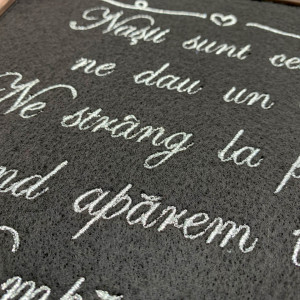 Nașii sunt ce
ne dau un
Ne strâng la p
nd apărem